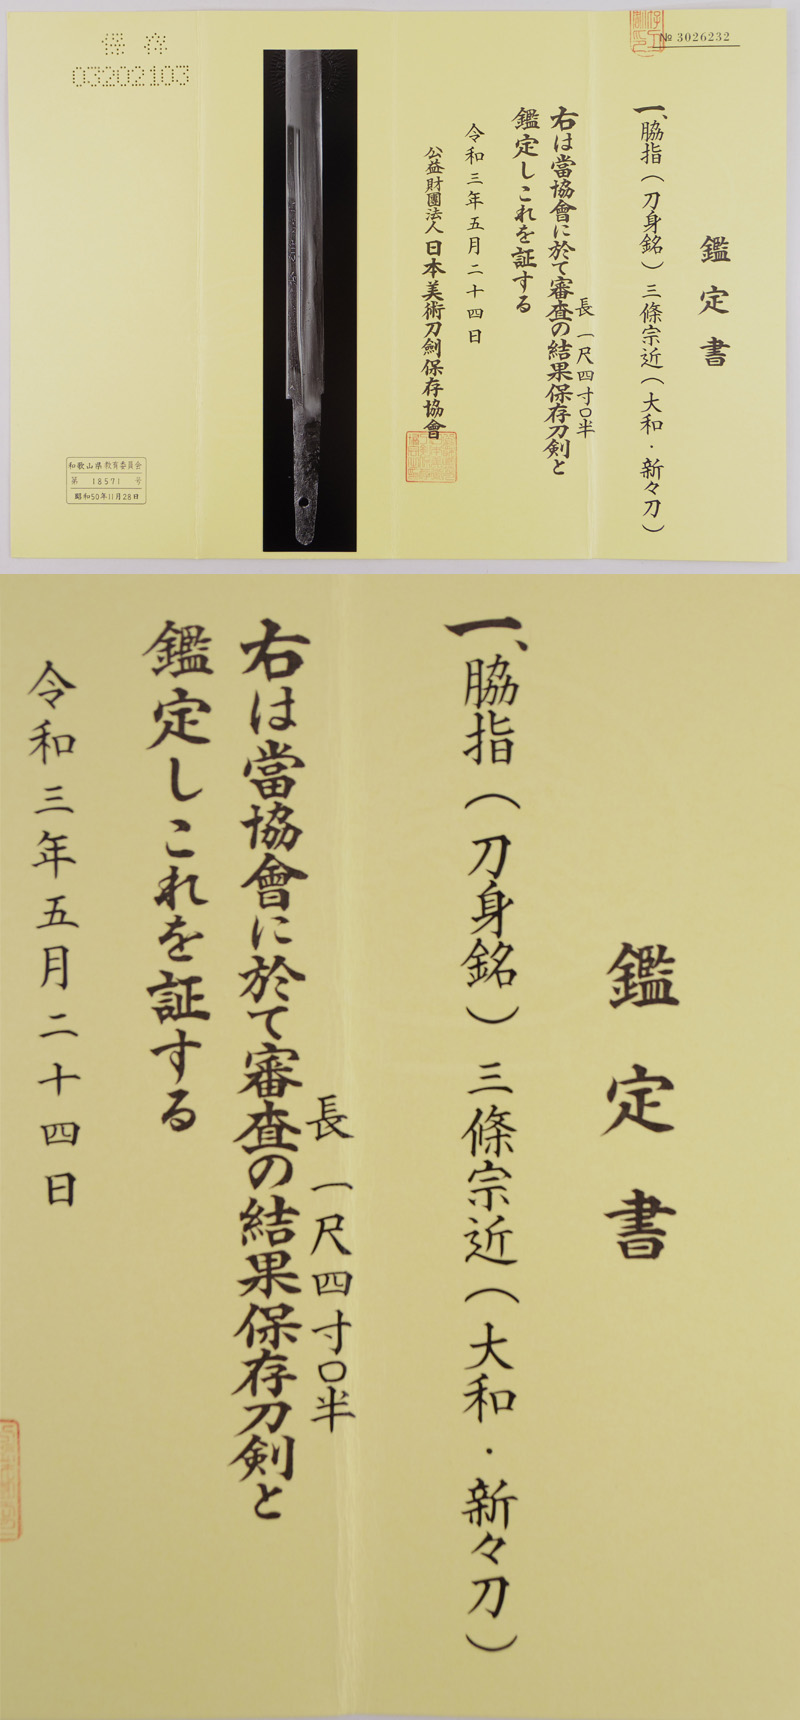 № 3026232
鑑定書
一、脇指（刀身銘）三條宗近（大和・新々刀）
長 一尺四寸〇半
右は當協會に於て審査の結果保存刀剣と
鑑定しこれを証する
令和三年五月二十四日
公益財團法人 日本美術刀劍保存協會
保存
03202103
和歌山県教育委員会
第 18571 号
昭和50年11月28日
鑑定書
一、脇指（刀身銘）三條宗近（大和・新々刀）
長 一尺四寸〇半
右は當協會に於て審査の結果保存刀剣と
鑑定しこれを証する
令和三年五月二十四日